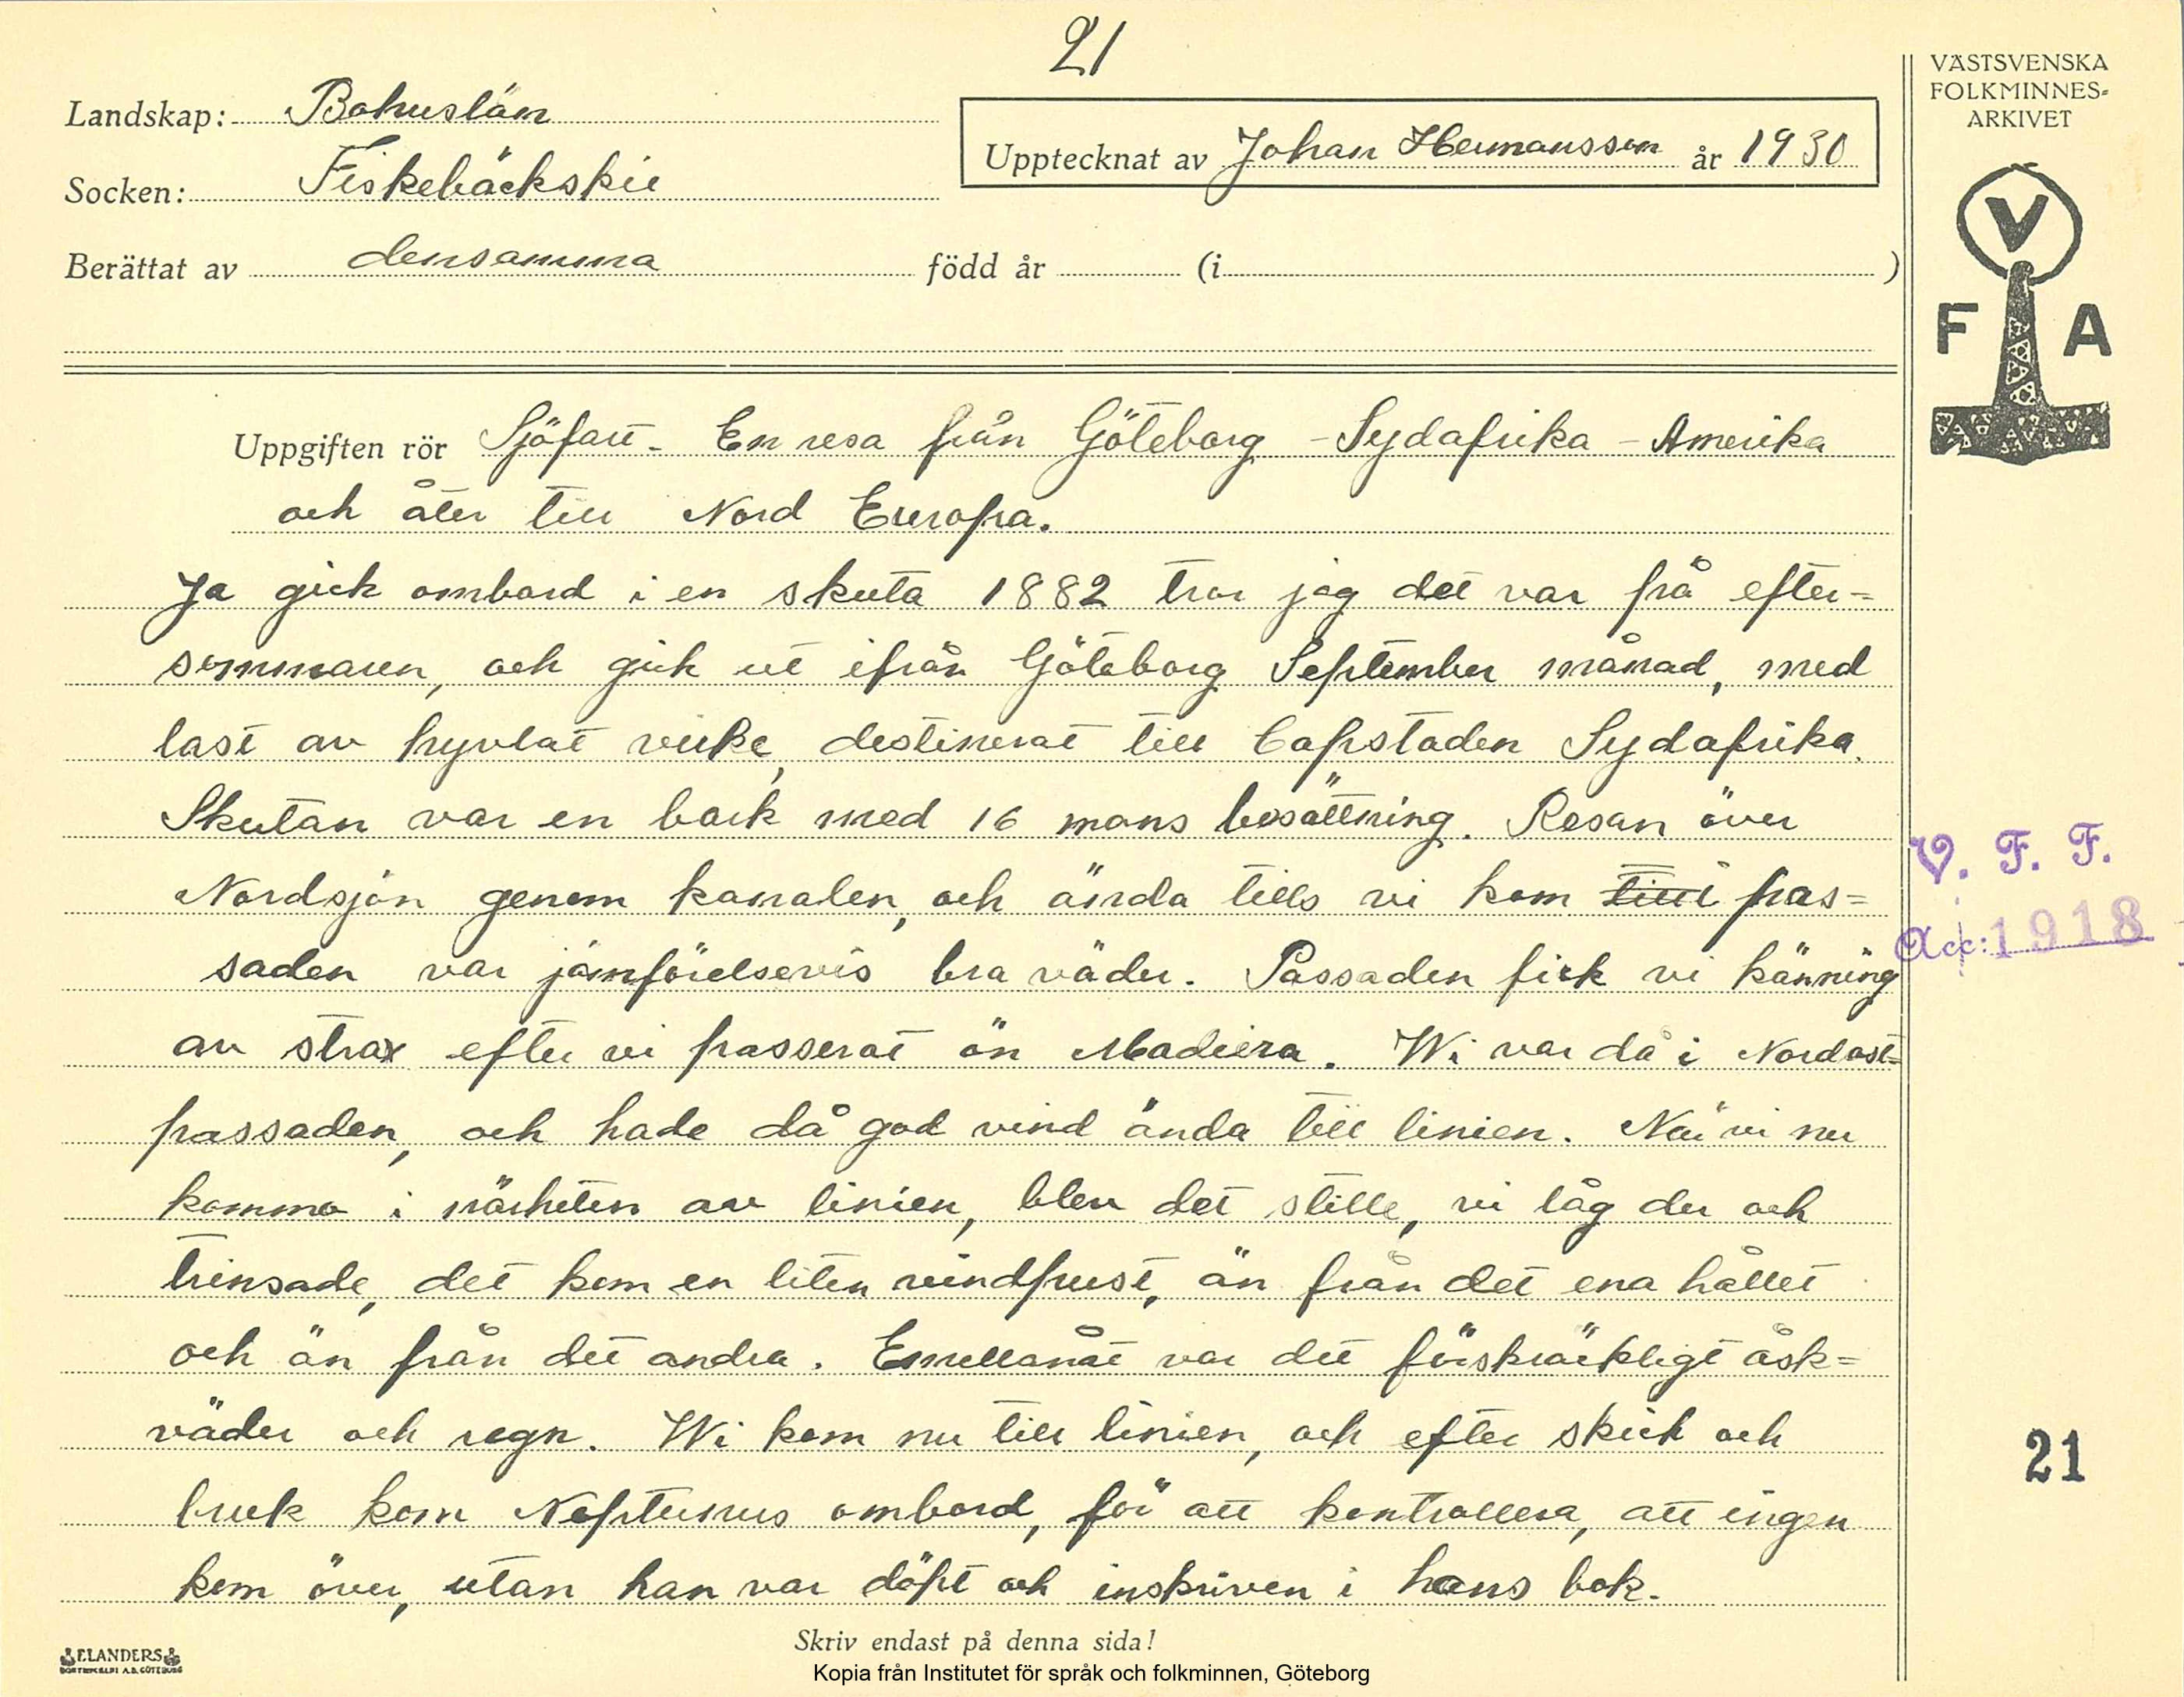 21
VÄSTSVENSKA
FOLKMINNES-
ARKIVET
Landskap: Bohuslän
Upptecknat av Johan Hermansson år 1930
Socken: Fiskebäckskil
Berättat av densamma född år (i )
V
F A
Uppgiften rör Sjöfart - En resa från Göteborg - Sydafrika - Amerika
och åter till Nord Europa.
Ja gick ombord i en skuta 1882 tror jag det var frå efter=
sommaren, och gick ut ifrån Göteborg September månad, med
last av hyvlat virke, destinerat till Capstaden Sydafrika.
Skutan var en bark med 16 mans besättning. Resan över
Nordsjön genom kanalen, och ända tills vi kom till pas=
saden var jämförelsevis bra väder. Passaden fick vi känning
av strax efter vi passerat ön Madiera. Wi var då i Nordost=
passaden, och hade då god vind ända till linien. När vi nu
komma i närheten av linien, blev det stille, vi låg der och
trinsade, det kom en liten vindpust, än från det ena hållet
och än från det andra. Emellanåt var det förskräckligt åsk=
väder och regn. Wi kom nu till linien, och efter skick och
bruk kom Neptunus ombord, för att kontrollera, att ingen
kom över, utan han var döpt och inskriven i hans bok.
V. F. F.
Acc: 1918
21
ELANDERS
BOKTRYCKERI A.B. GÖTEBORG
Skriv endast på denna sida!
Kopia från Institutet för språk och folkminnen, Göteborg